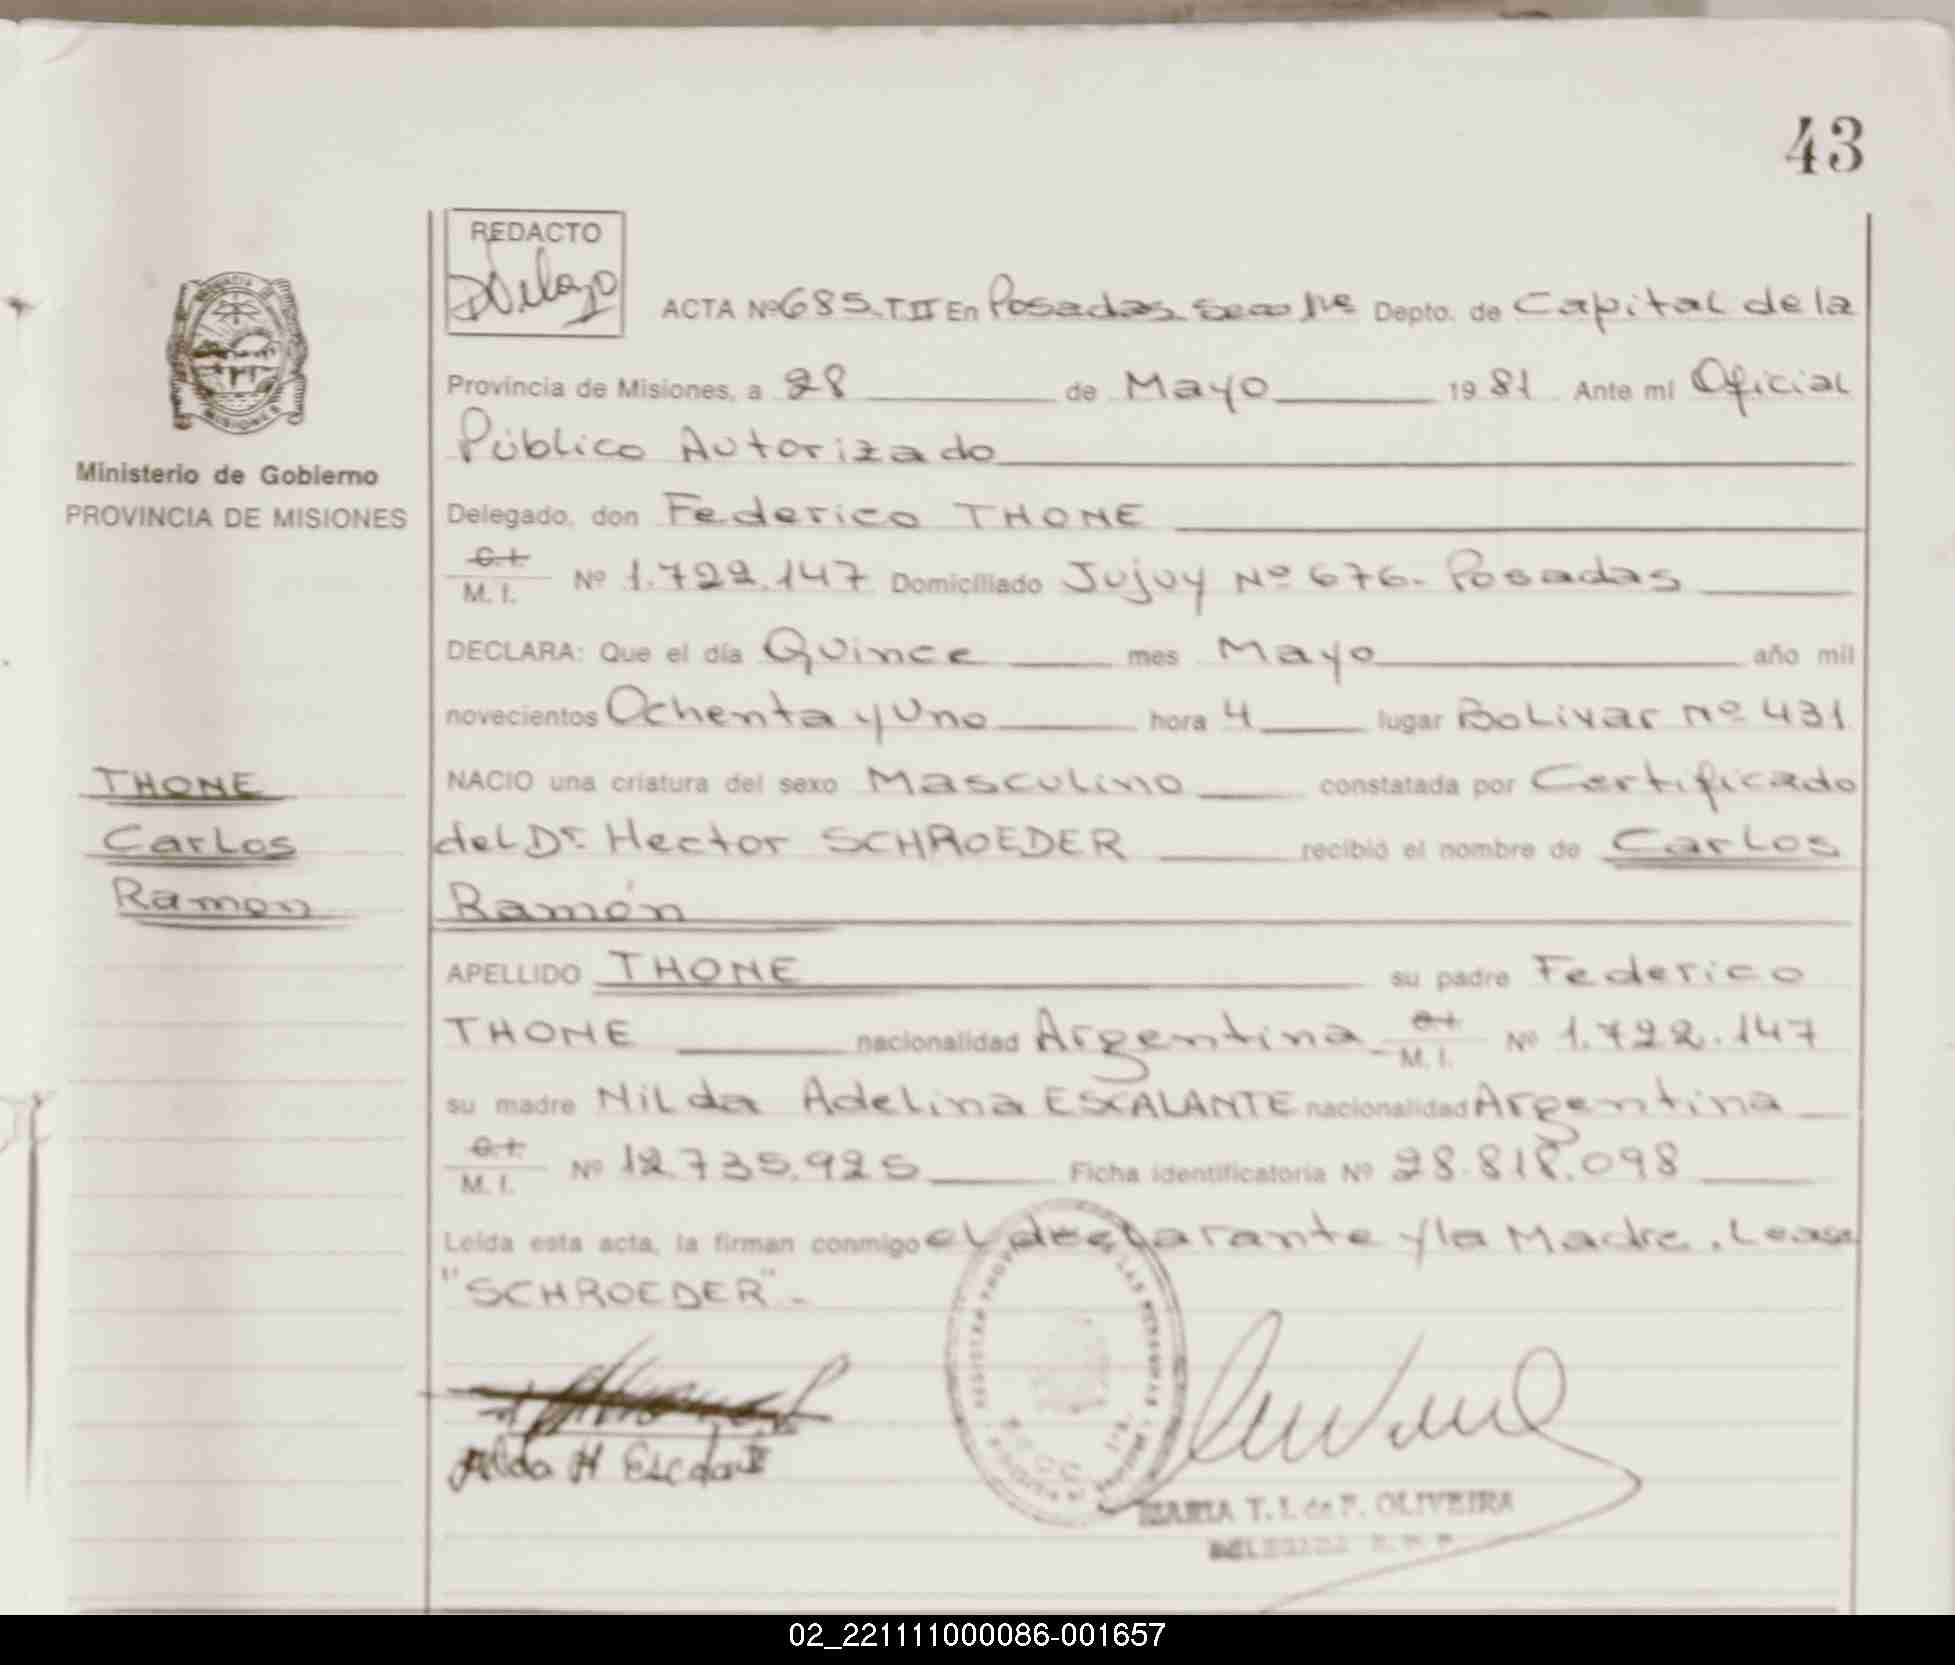 43
REDACTO
ACTA Nº 685. T II En Posadas Secc 1ra Depto. de Capital de la
Provincia de Misiones, a 28 de Mayo 1981 Ante mi Oficial
Público Autorizado
Ministerio de Gobierno
PROVINCIA DE MISIONES
Delegado, don Federico THONE
C.I. M. I. Nº 1.722.147 Domiciliado Jujuy Nº 676. Posadas
DECLARA: Que el día Quince mes Mayo año mil
novecientos Ochenta y Uno hora 4 lugar Bolivar Nº 431
THONE
Carlos
Ramón
NACIO una criatura del sexo Masculino constatada por Certificado
del Dr. Hector SCHROEDER recibió el nombre de Carlos
Ramón
APELLIDO THONE su padre Federico
THONE nacionalidad Argentina C.I. M. I. Nº 1.722.147
su madre Nilda Adelina ESCALANTE nacionalidad Argentina
C.I. M. I. Nº 12.735.925 Ficha identificatoria Nº 28.818.098
Leída esta acta, la firman conmigo el declarante y la Madre. Lease
"SCHROEDER".-
MARIA T. I. de F. OLIVEIRA
DELEGADA
02_221111000086-001657